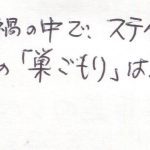 禍の中で、ステ
の「巣ごもり」は